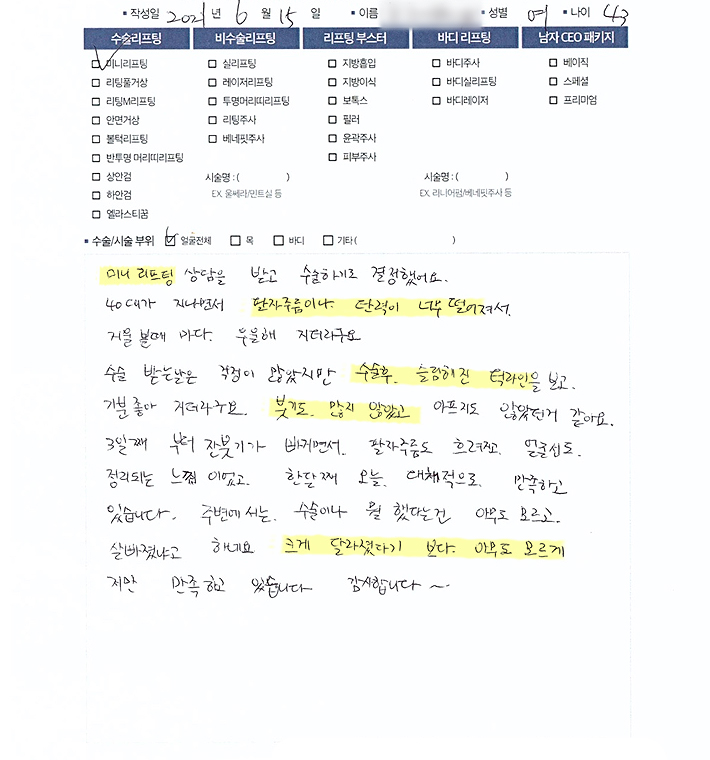 ▪ 작성일 2021 년 6 월 15 일 ▪ 이름 ▪ 성별 여 ▪ 나이 43
수술리프팅 비수술리프팅 리프팅 부스터 바디 리프팅 남자 CEO 패키지
미니리프팅 실리프팅 지방흡입 바디주사 베이직
리팅풀거상 레이저리프팅 지방이식 바디실리프팅 스페셜
리팅M리프팅 투명머리띠리프팅 보톡스 바디레이저 프리미엄
안면거상 리팅주사 필러
볼턱리프팅 베네핏주사 윤곽주사
반투명 머리띠리프팅 피부주사
상안검 시술명 : ( ) 시술명 : ( )
하안검 EX. 울쎄라/민트실 등 EX. 리니어펌/베네핏주사 등
엘라스티꿈
▪ 수술/시술 부위 얼굴전체 목 바디 기타 ( )
미니 리프팅 상담을 받고 수술하기로 결정했어요.
40대가 지나면서 팔자주름이나 탄력이 너무 떨어져서.
거울볼때 마다. 우울해 지더라구요
수술 받는날은 걱정이 많았지만 수술후. 슬림해진 턱라인을 보고.
기분좋아 지더라구요. 붓기도. 많지 않았고 아프지도 않았던거 같아요.
3일째 부터 잔붓기가 빠지면서. 팔자주름도 흐려지고. 얼굴선도.
정리되는 느낌이었고. 한달째 오늘. 대체적으로. 만족하고
있습니다. 주변에서는. 수술이나 뭘 했다는건 아무도 모르고.
살빠졌냐고 하네요 크게 달라졌다기 보다. 아무도 모르게
지만 만족하고 있습니다 감사합니다 ~